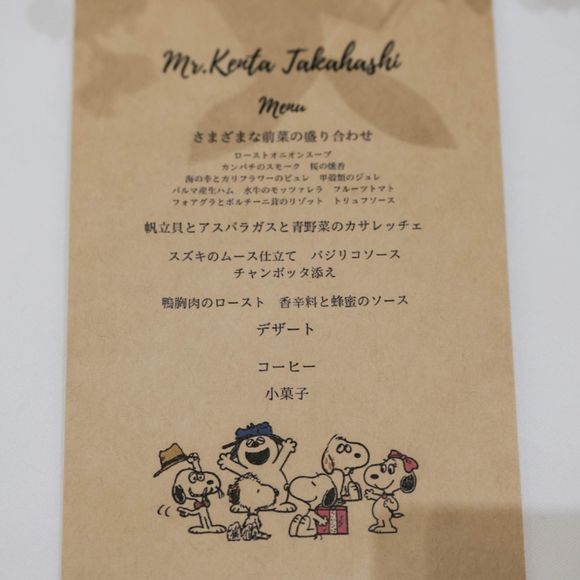 Mr.Kenta Takahashi
Menu
さまざまな前菜の盛り合わせ
ローストオニオンスープ
カンパチのスモーク　桜の燻香
海の幸とカリフラワーのピュレ　甲殻類のジュレ
パルマ産生ハム　水牛のモッツァレラ　フルーツトマト
フォアグラとポルチーニ茸のリゾット　トリュフソース
帆立貝とアスパラガスと青野菜のカサレッチェ
スズキのムース仕立て　バジリコソース
チャンボッタ添え
鴨胸肉のロースト　香辛料と蜂蜜のソース
デザート
コーヒー
小菓子